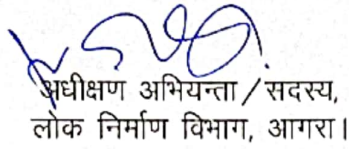 अधीक्षण अभियन्ता / सदस्य,
लोक निर्माण विभाग, आगरा।